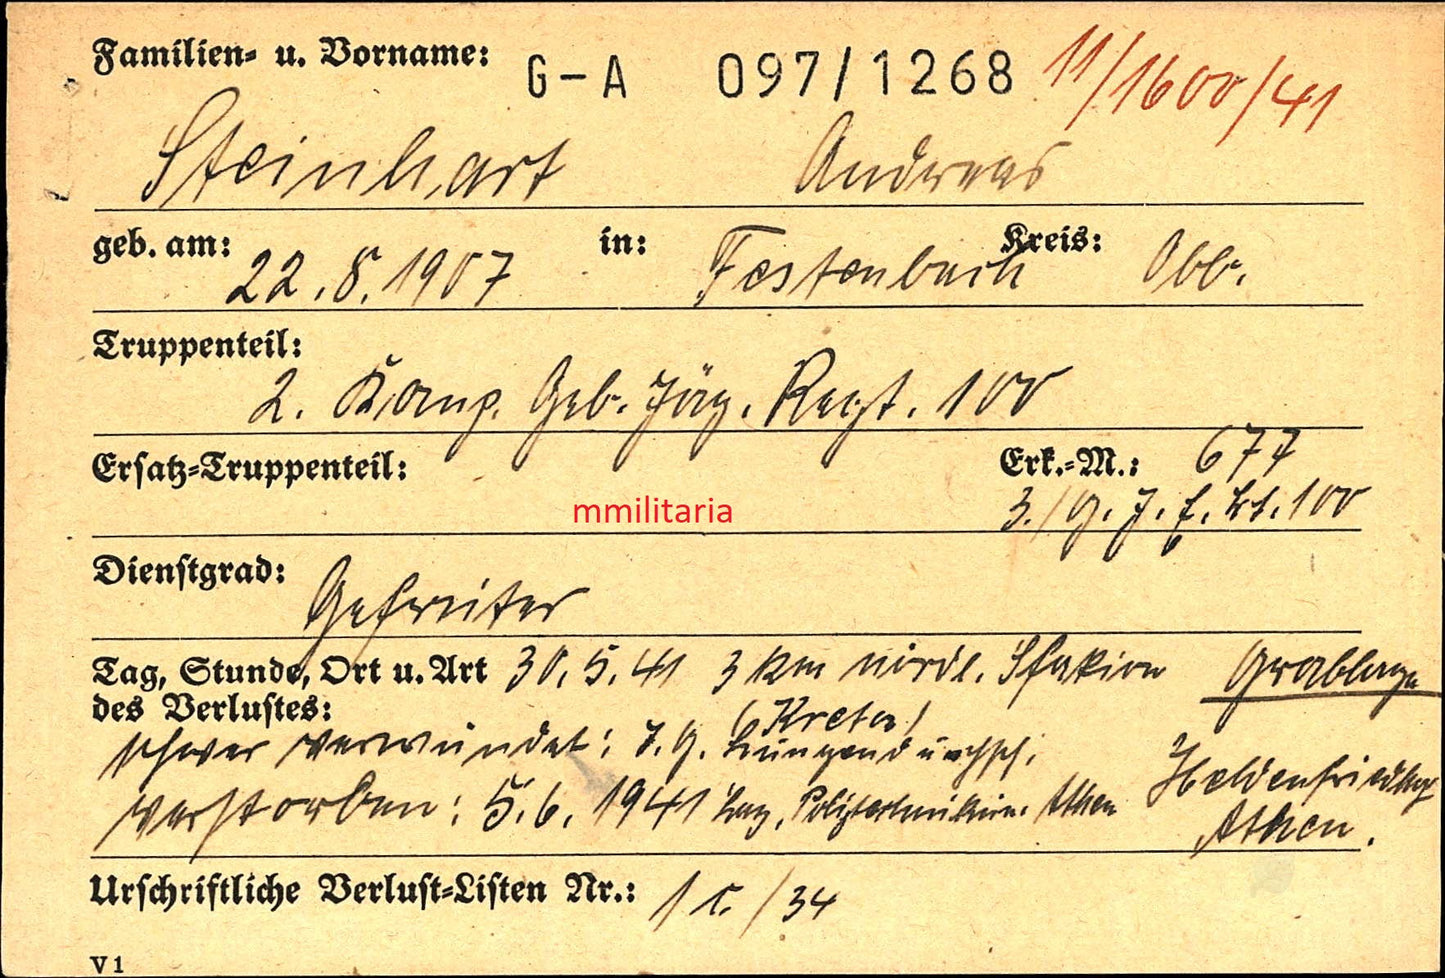 Familien- u. Vorname: G-A 097/1268 11/1600/41
Steinhart Andreas
geb. am: 22.8.1907 in: Festenbach Kreis: Obb.
Truppenteil:
2. Komp. Geb. Jäg. Regt. 100
Ersatz-Truppenteil: Erk.-M.: 677
mmilitaria 3./G.J.E.Btl.100
Dienstgrad: Gefreiter
Tag, Stunde, Ort u. Art 30.5.41 3 km nördl. Sfakion Grablage
des Verlustes: (Kreta)
schwer verwundet: I.G. Lungendurchsch.
verstorben: 5.6.1941 Laz. Athen Heldenfriedhof
Athen.
Urschriftliche Verlust-Listen Nr.: 1 c. /34
V1